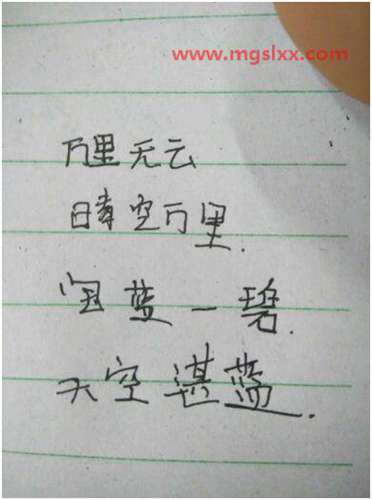 www.mgslxx.com
万里无云
晴空万里.
宝蓝一碧.
天空湛蓝.